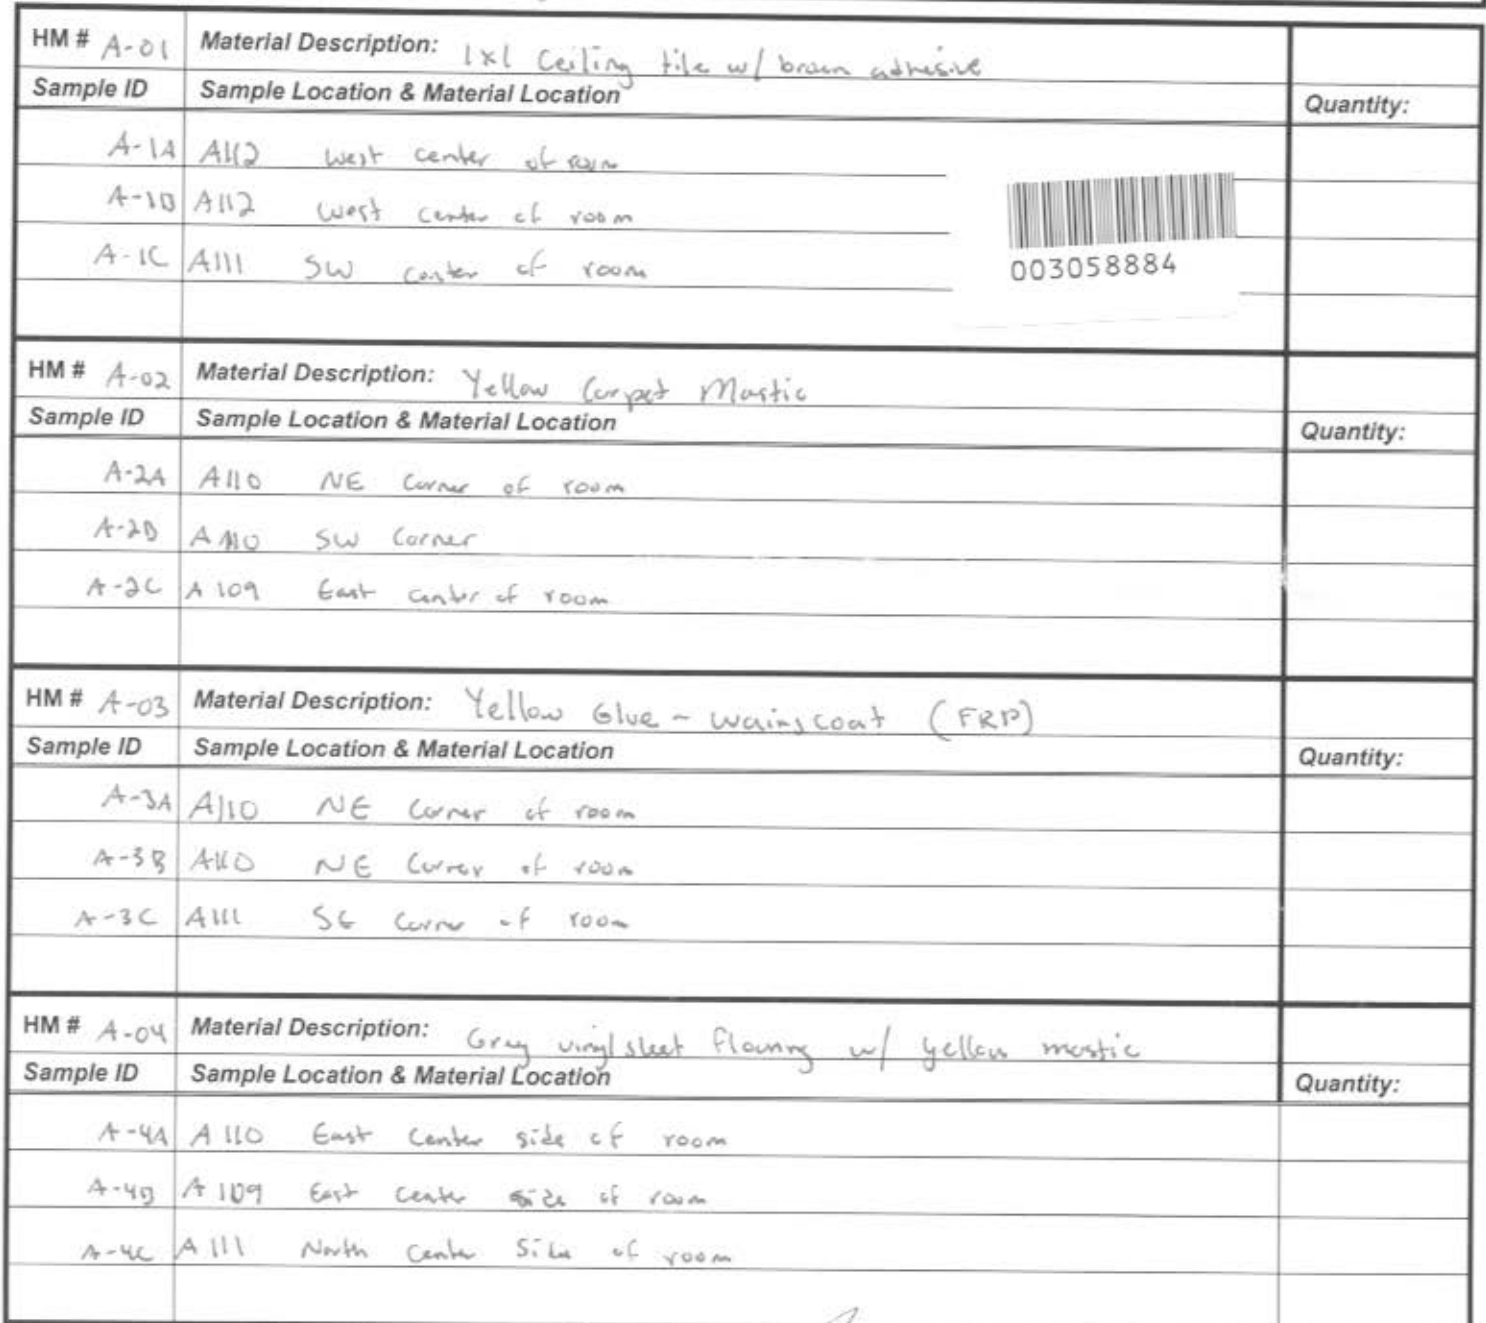 HM # A-01 Material Description: 1x1 Ceiling tile w/ brown adhesive
Sample ID Sample Location & Material Location Quantity:
A-1A A112 West center of room
A-1B A112 West center of room
A-1C A111 SW center of room
003058884
HM # A-02 Material Description: Yellow Carpet Mastic
Sample ID Sample Location & Material Location Quantity:
A-2A A110 NE Corner of room
A-2B A110 SW Corner
A-2C A109 East center of room
HM # A-03 Material Description: Yellow Glue - Wainscoat (FRP)
Sample ID Sample Location & Material Location Quantity:
A-3A A110 NE Corner of room
A-3B A110 NE Corner of room
A-3C A111 SE Corner of room
HM # A-04 Material Description: Gray vinyl sheet flooring w/ yellow mastic
Sample ID Sample Location & Material Location Quantity:
A-4A A110 East Center side of room
A-4B A109 East Center side of room
A-4C A111 North Center Side of room